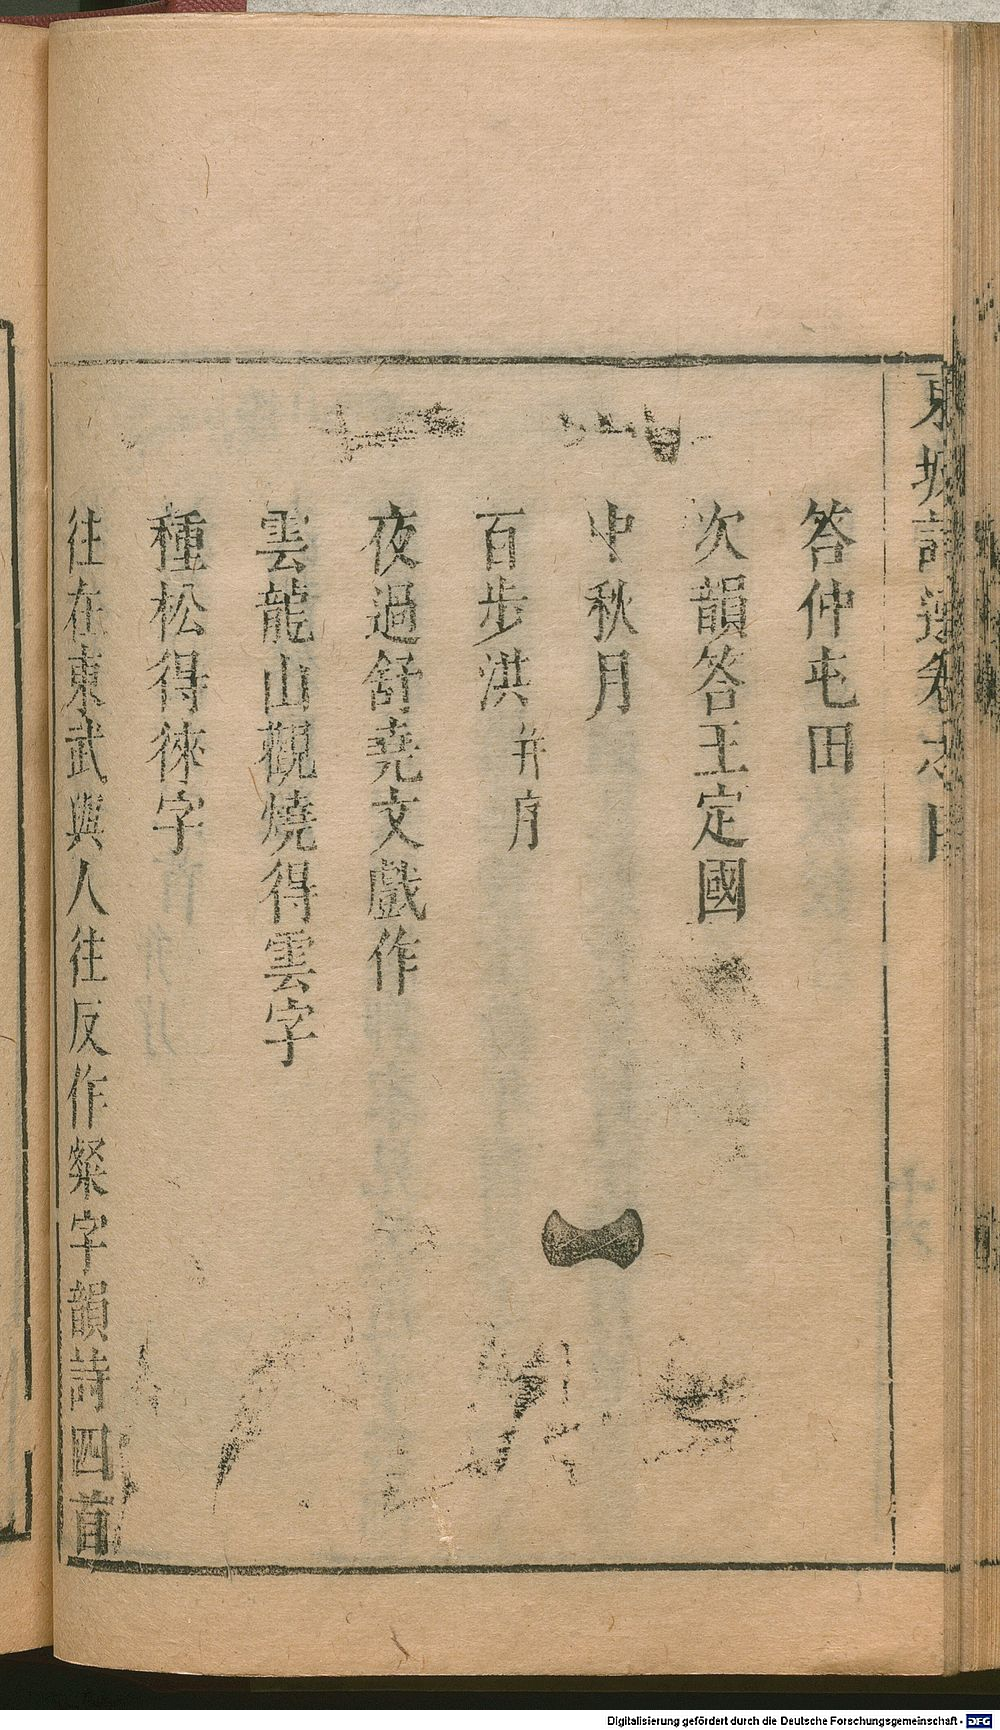 東坡詩選卷之
答仲屯田
次韻答王定國
中秋月
百步洪 并序
夜過舒堯文戲作
雲龍山觀燒得雲字
種松得徠字
往在東武與人往反作粲字韻詩四首
Digitalisierung gefördert durch die Deutsche Forschungsgemeinschaft - DFG